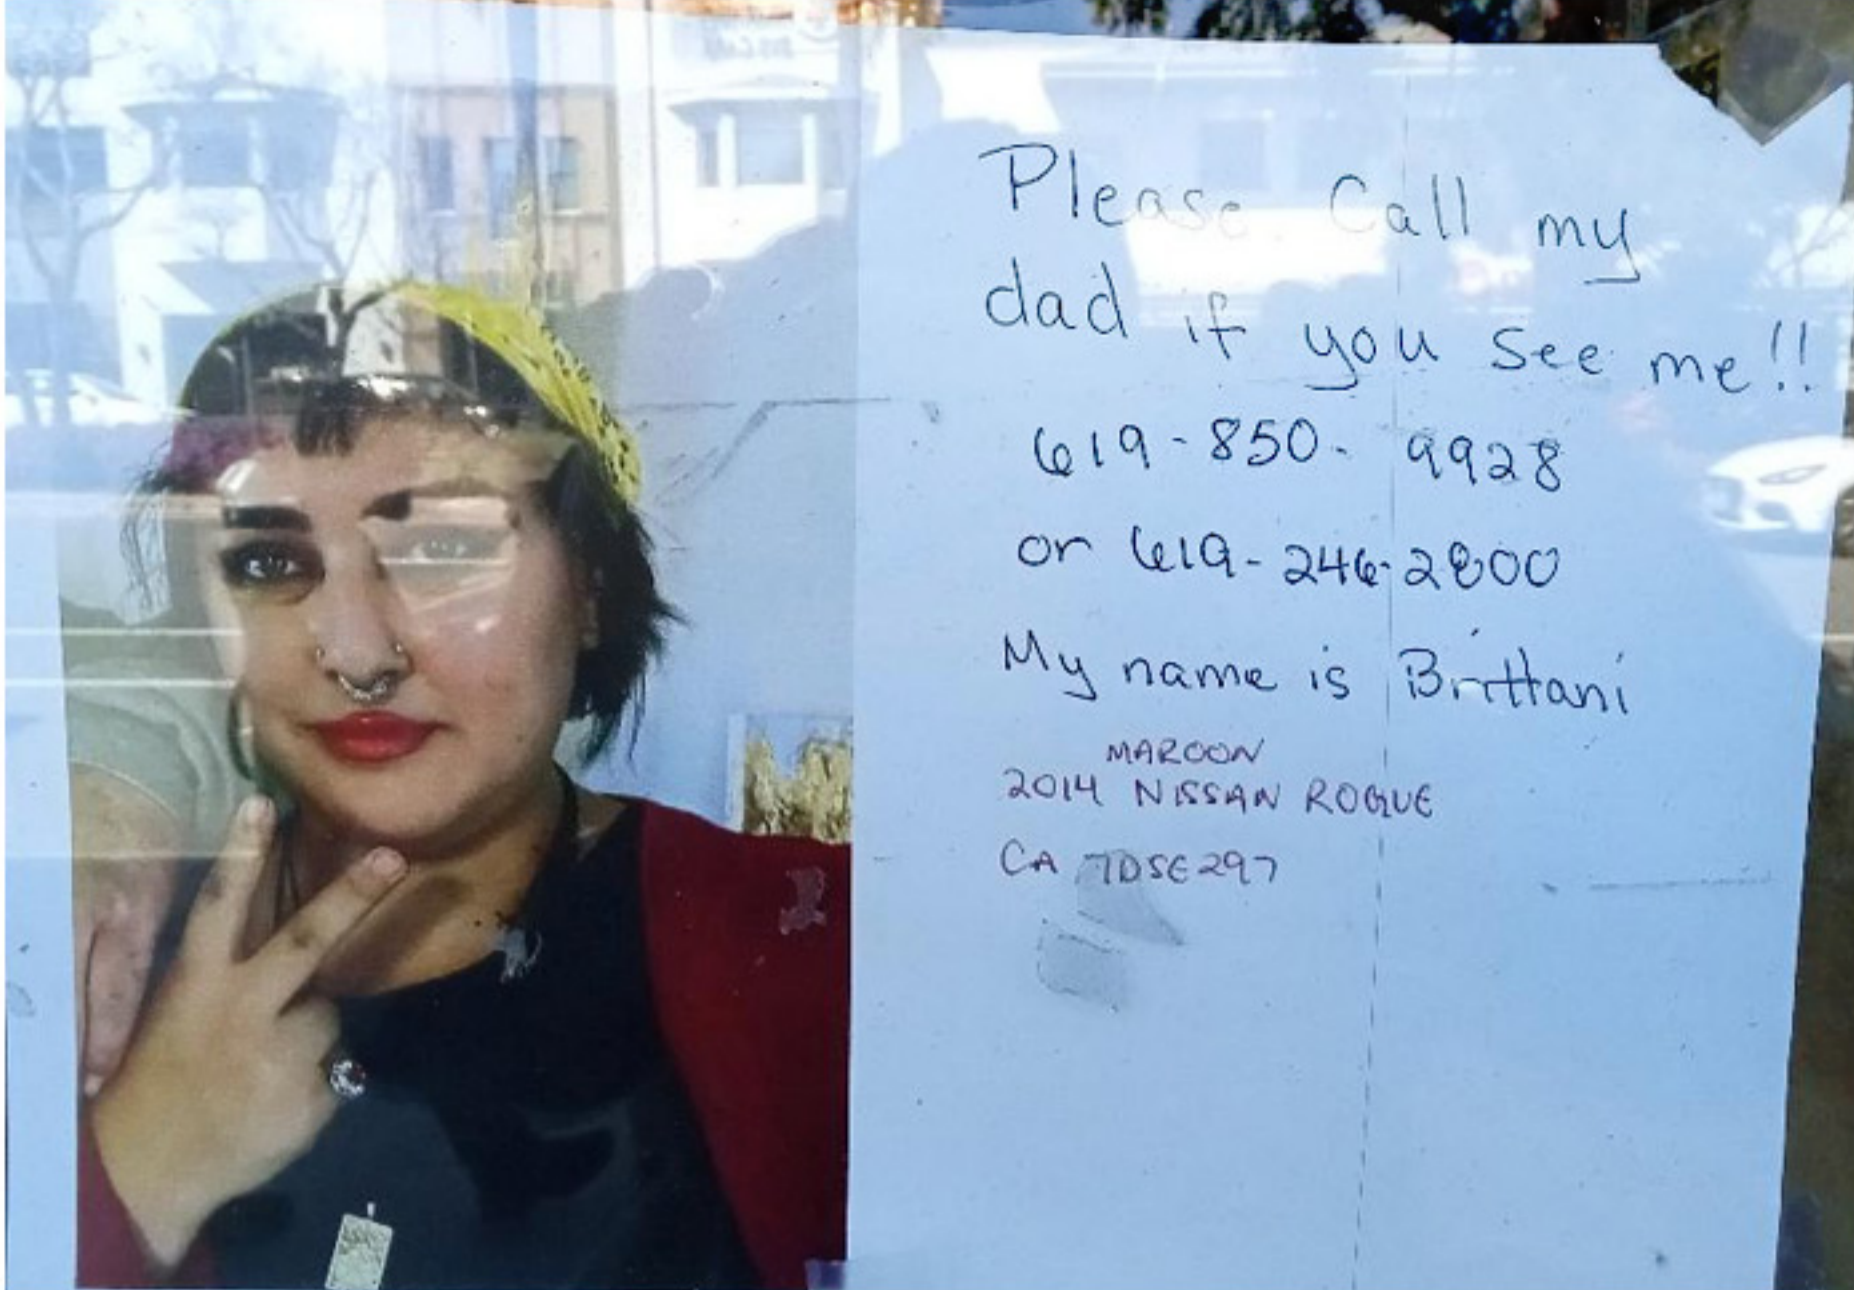 Please Call my
dad if you see me!!
619-850-9928
or 619-246-2800
My name is Brittani
MAROON
2014 NISSAN ROGUE
CA 7DSE297